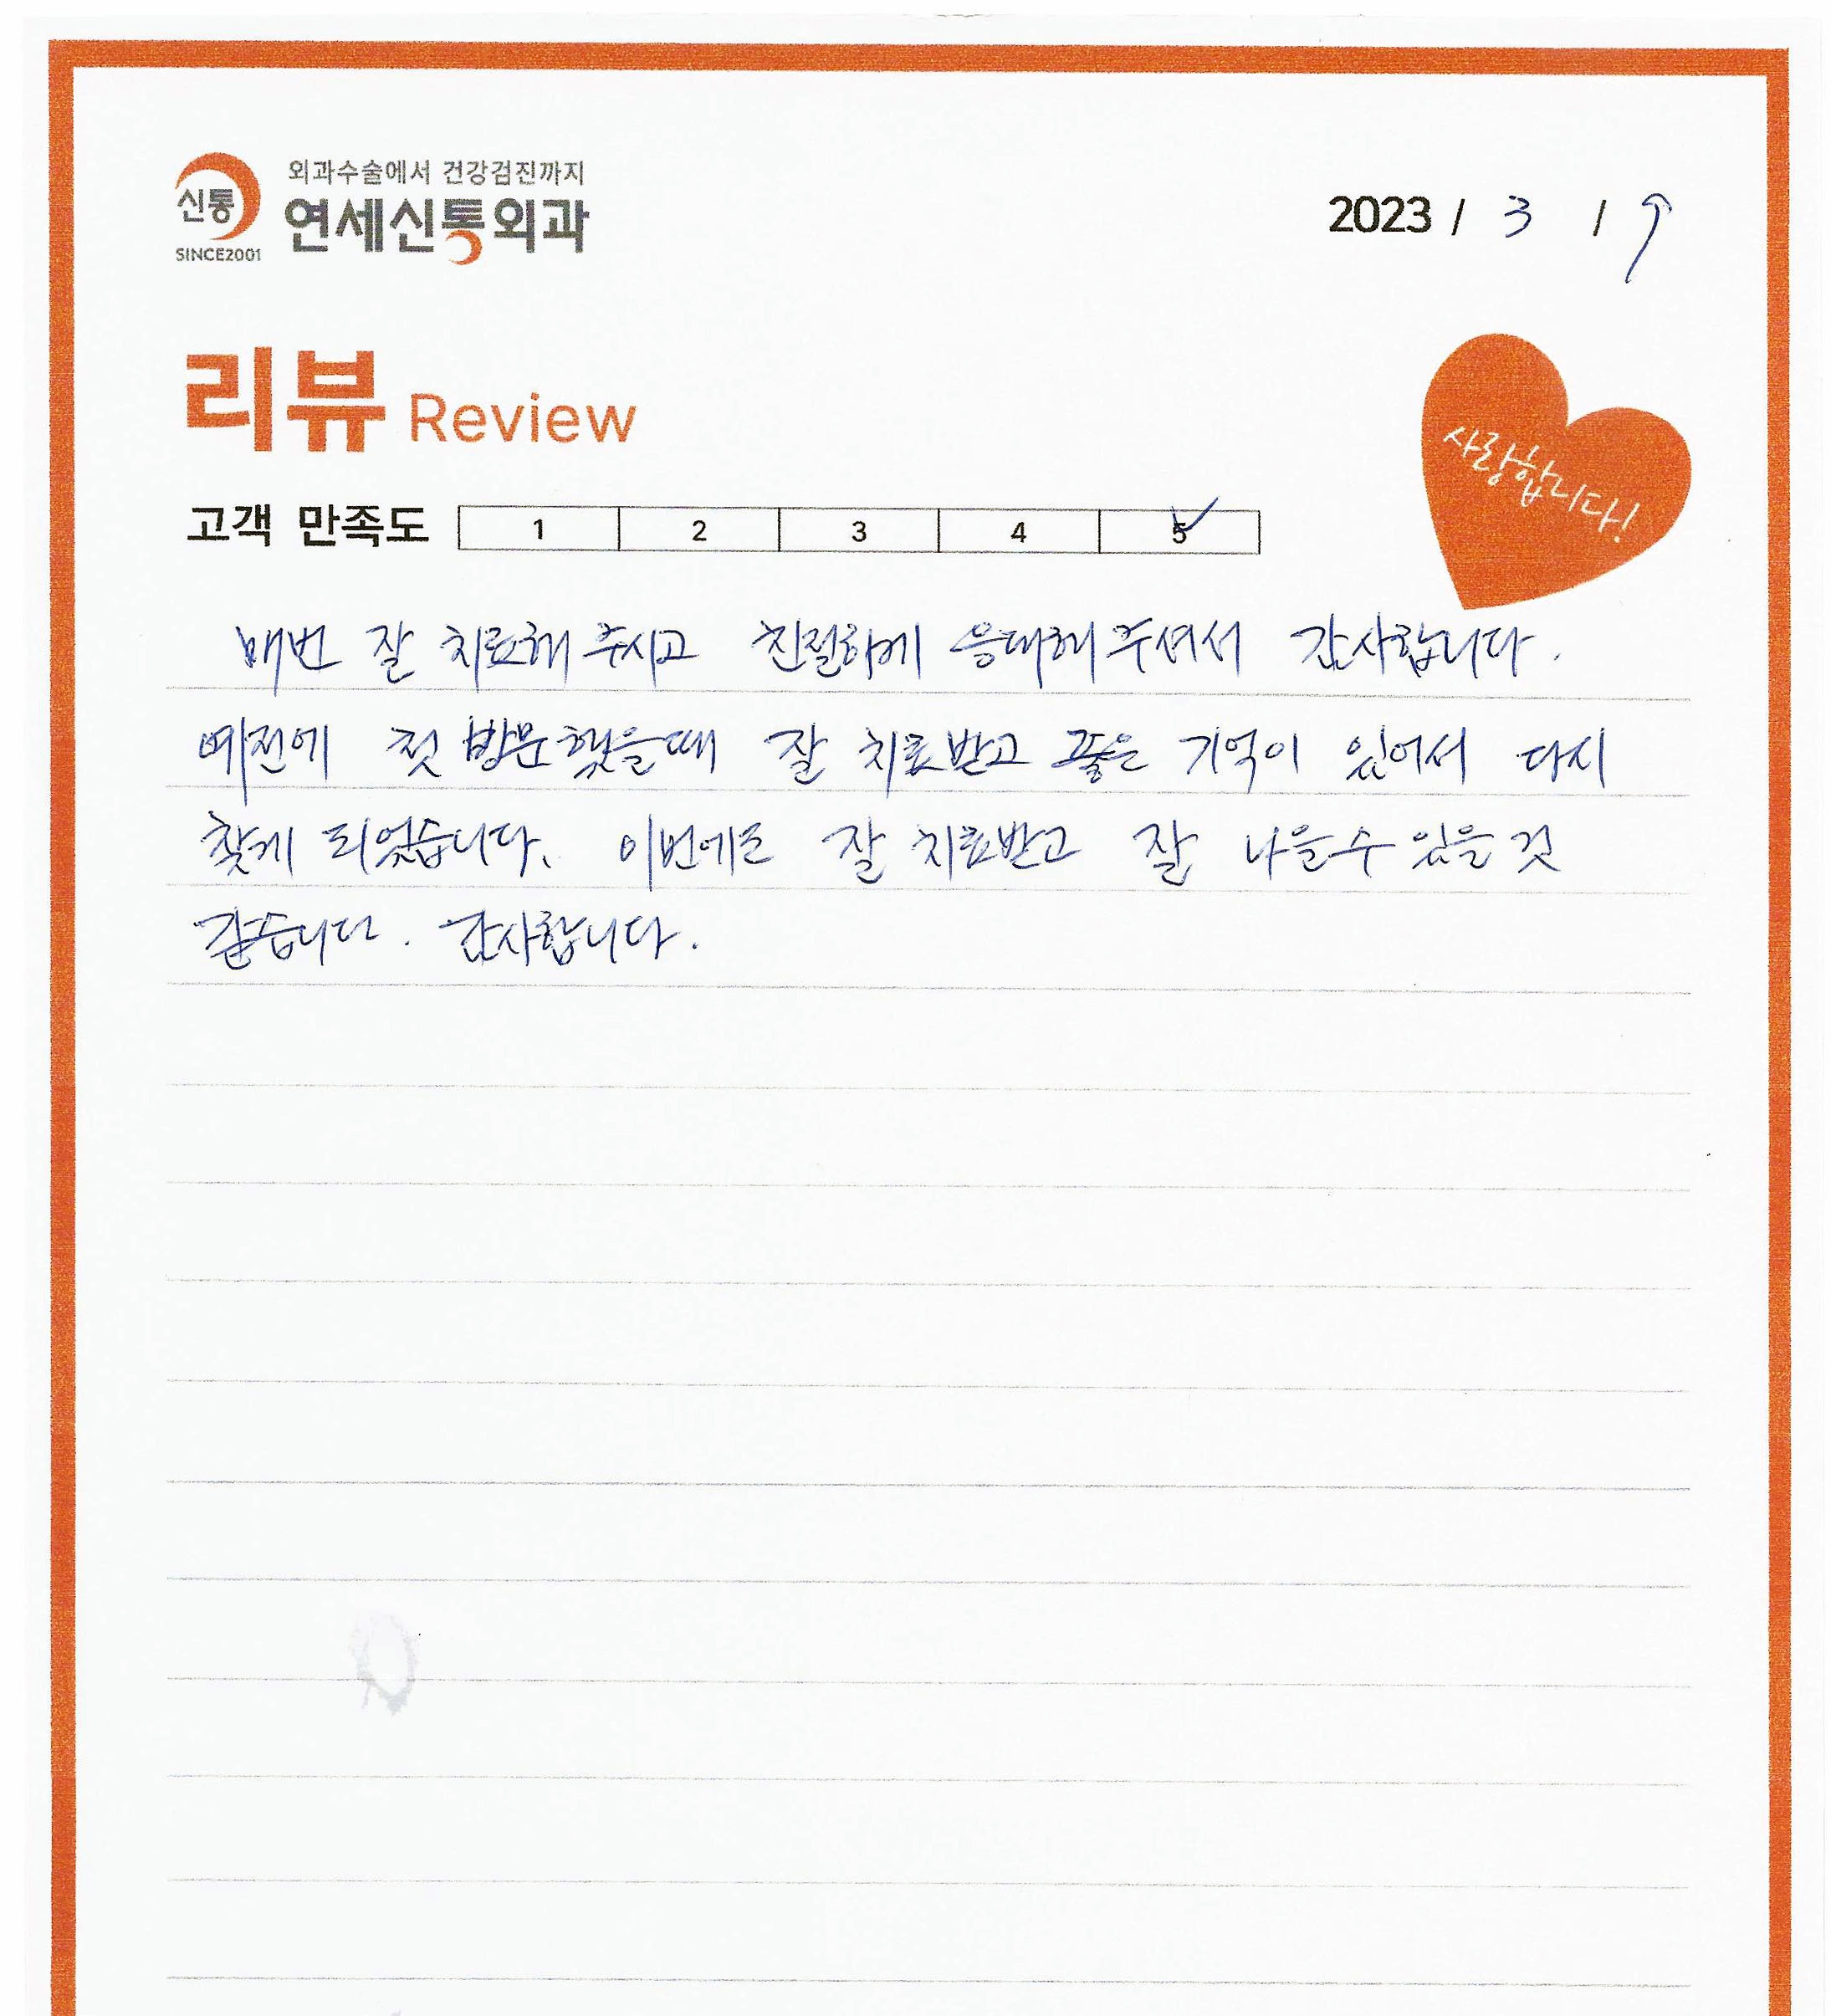 신통
SINCE2001
외과수술에서 건강검진까지
연세신통외과
2023 / 3 / 9
리뷰 Review
사랑합니다!
고객 만족도 1 2 3 4 5
매번 잘 치료해 주시고 친절하게 응대해 주셔서 감사합니다.
예전에 첫 방문했을때 잘 치료받고 좋은 기억이 있어서 다시
찾게 되었습니다. 이번에도 잘 치료받고 잘 나을수 있을 것
같습니다. 감사합니다.